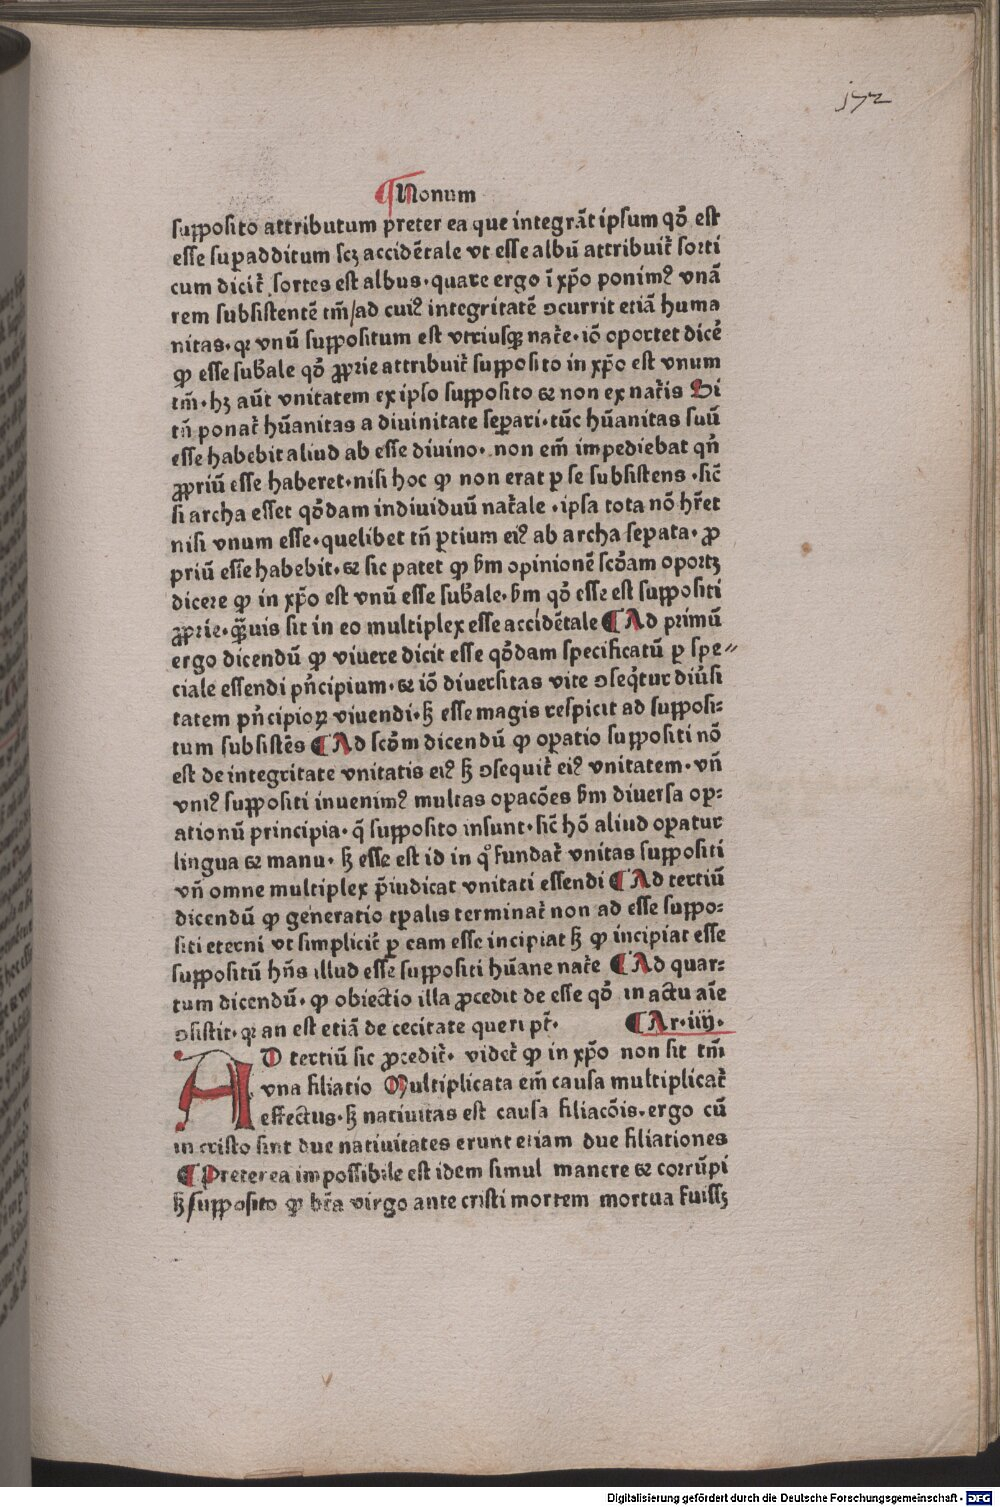 172
¶ Nonum
suppositio attributum preter ea que integrãt ipsum qḋ est
esse suꝑadditum scꝫ accidẽtale vt esse albũ attribuit̃ sorti
cum dicit̃ sortes est albus· quare ergo ĩ xp̃o ponimꝰ vnã
rem subsistentẽ tm̃/ad cuiꝰ integritatẽ ꝯcurrit etiã huma
nitas· qꝛ vnũ suppositum est vtriusqꝫ nat̃e· iõ oportet dicẽ
ꝙ esse sub̃ale qḋ ꝓprie attribuit̃ supposito in xp̃o est vnum
tm̃· hꝫ aũt vnitatem ex ipso supposito ⁊ non ex nat̃is Si
tñ ponat̃ hũanitas a diuinitate seꝑari· tũc hũanitas suũ
esse habebit aliud ab esse diuino· non em̃ impediebat qñ
ꝓpriũ esse haberet· nisi hoc ꝙ non erat ꝑ se subsistens ·sic̃
si archa esset qḋdam indiuiduũ nat̃ale ·ipsa tota nõ hr̃et
nisi vnum esse· quelibet tñ ꝑtium eiꝰ ab archa seꝑata· ꝓ
priũ esse habebit· ⁊ sic patet ꝙ ẜm opinionẽ scḋam oportꝫ
dicere ꝙ in xp̃o est vnũ esse sub̃ale· ẜm qḋ esse est suppositi
ꝓprie· qꝫ̃uis sit in eo multiplex esse accidẽtale ¶ Ad primũ
ergo dicendũ ꝙ viuere dicit esse qḋdam specificatũ ꝑ spe⸗
ciale essendi pñcipium· ⁊ iõ diuersitas vite ꝯseq̃tur diũsi
tatem pñcipioꝝ viuendi· ꝫ esse magis respicit ad supposi⸗
tum subsistẽs ¶ Ad scḋm dicendũ ꝙ oꝑatio suppositi nõ
est de integritate vnitatis eiꝰ ꝫ ꝯsequit̃ eiꝰ vnitatem· vñ
vniꝰ suppositi inuenimꝰ multas oꝑacões ẜm diuersa oꝑ⸗
ationũ principia· q̃ supposito insunt· sic̃ hõ aliud oꝑatur
lingua ⁊ manu· ꝫ esse est id in qͦ fundat̃ vnitas suppositi
vñ omne multiplex p̃iudicat vnitati essendi ¶ Ad tertiũ
dicendũ ꝙ generatio tꝑalis terminat̃ non ad esse suppo⸗
siti eterni vt simplicit̃ ꝑ eam esse incipiat ꝫ ꝙ incipiat esse
suppositũ hñs illud esse suppositi hũane nat̃e ¶ Ad quar⸗
tum dicendũ· ꝙ obiectio illa ꝓcedit de esse qḋ in actu aĩe
ꝯsistit· qꝛ an est etiã de cecitate queri pt̃· ¶ Ar·iiij·
AD tertiũ sic ꝓcedit̃· videt̃ ꝙ in xp̃o non sit tm̃
vna filiatio Multiplicata em̃ causa multiplicat̃
effectus· ꝫ natiuitas est causa filiacõis· ergo cũ
in cristo sint due natiuitates erunt etiam due filiationes
¶ Preterea impossibile est idem simul manere ⁊ corrũpi
ꝫ supposito ꝙ bt̃a virgo ante cristi mortem mortua fuissꝫ
Digitalisierung gefördert durch die Deutsche Forschungsgemeinschaft · DFG